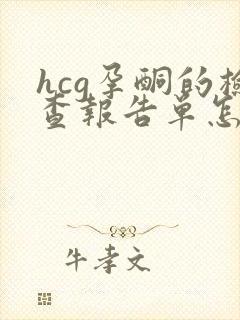 hcg孕酮的检
查报告单怎
牛孝文